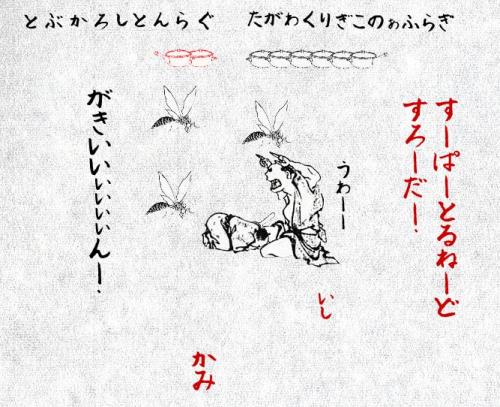 とぶかろしとんらぐ
たがわくりぎこのぁふらぎ
すーぱーとるねーど
すろーだー！
うわーー
がきいいいぃぃぃぃんー！
いし
かみ